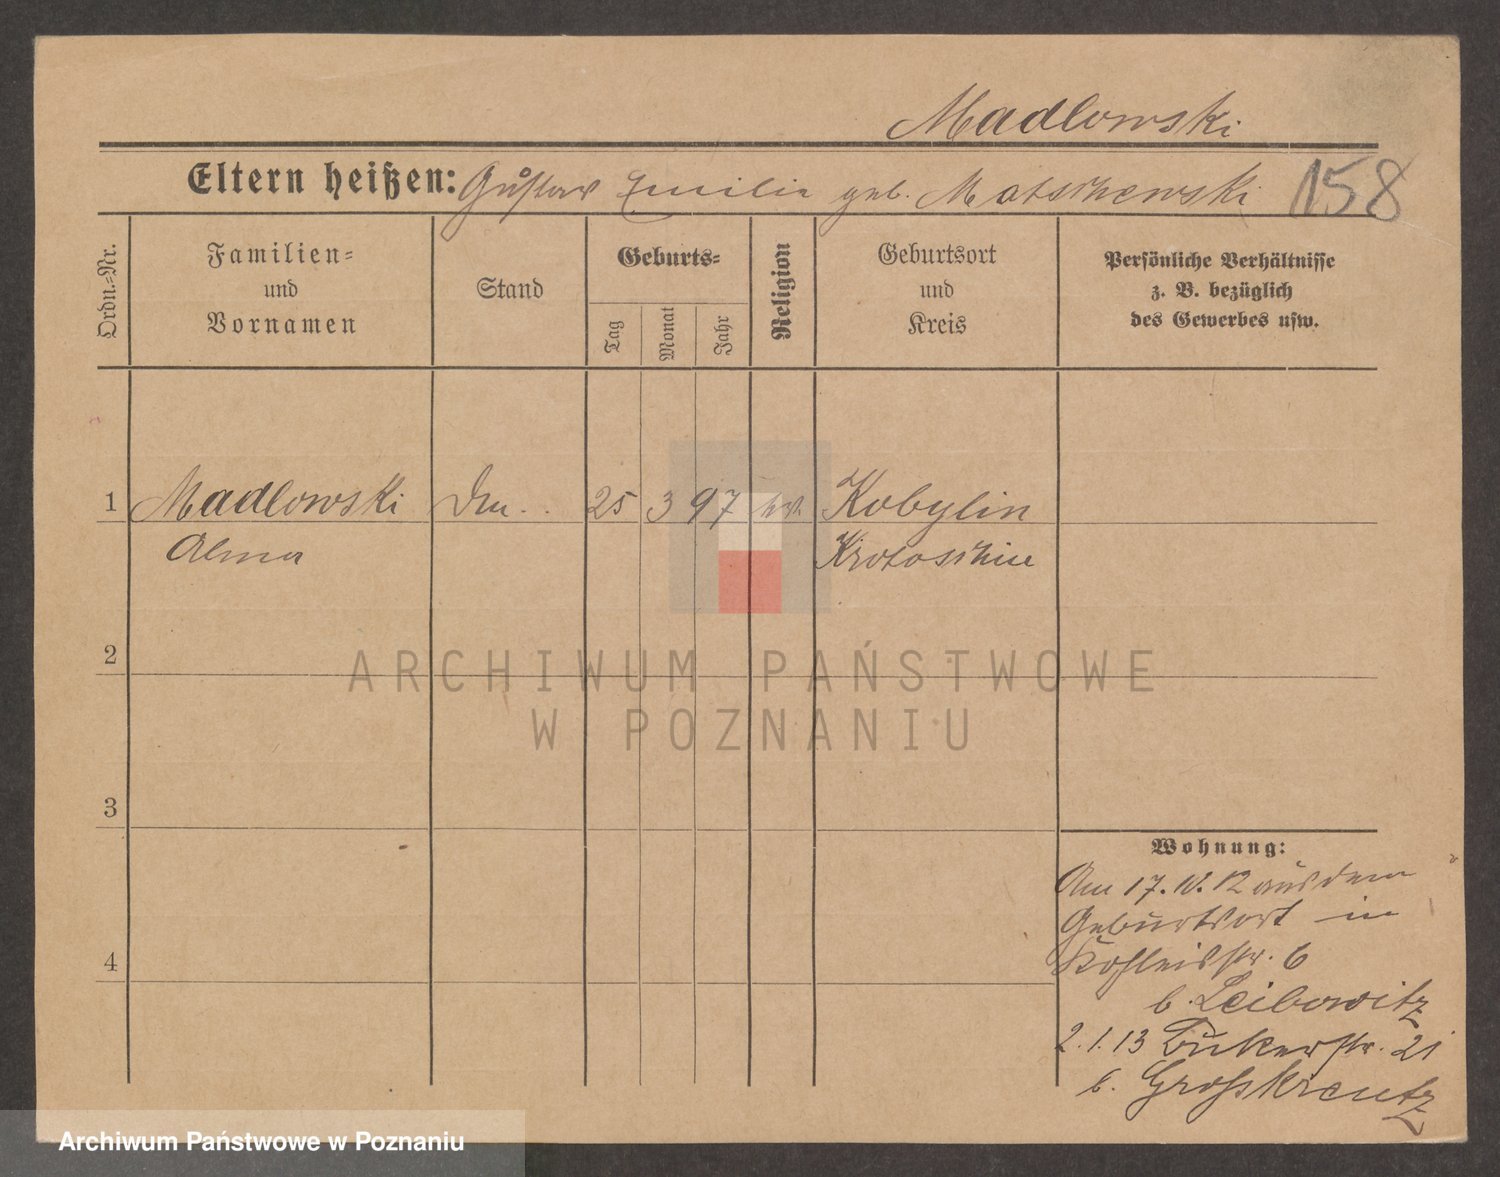 Madlowski
Eltern heißen: Gustav Emilie geb. Matschewski 158
Ordn.-Nr.
Familien-
und
Vornamen
Stand
Geburts-
Tag
Monat
Jahr
Religion
Geburtsort
und
Kreis
Persönliche Verhältnisse
z. B. bezüglich
des Gewerbes usw.
1 Madlowski 25 3 97 Kobylin
Alma Krotoschin
2
3
4
Wohnung:
Am 17. 12 aus dem
Geburtsort in
6
b. Leibowitz
2.1.13 Bukerstr. 21
b. Grosskreutz
ARCHIWUM PAŃSTWOWE
W POZNANIU
Archiwum Państwowe w Poznaniu